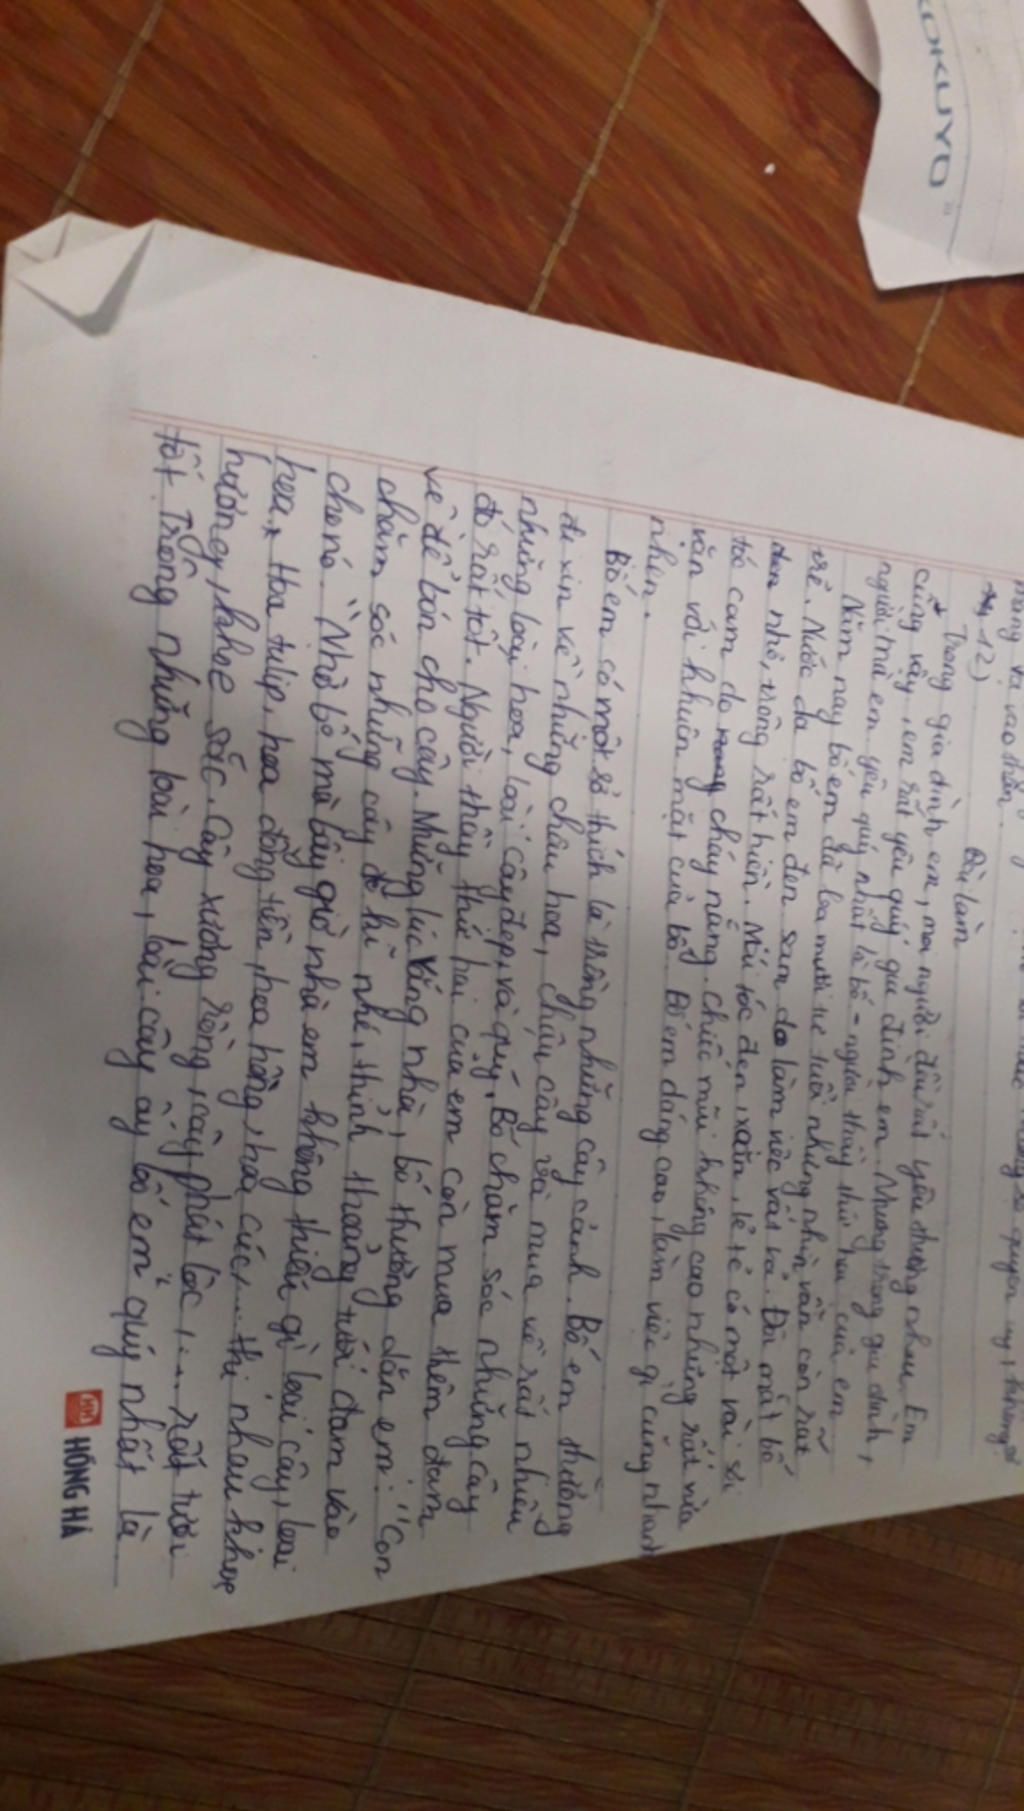 KOKUYO
12)
Bài làm
Trong gia đình em, mọi người đều rất yêu thương nhau. Em
cũng vậy, em rất yêu quý gia đình em. Nhưng trong gia đình,
người mà em yêu quý nhất là bố - người thầy thứ hai của em
Năm nay bố em đã ba mươi tư tuổi nhưng nhìn vẫn còn rất
trẻ. Nước da bố em đen sạm do làm việc vất vả. Đôi mắt bố
đen nhỏ, trông rất hiền. Mái tóc đen, xoăn, lơ tơ có một vài sợi
tóc cam do cháy nắng. Chiếc mũi không cao nhưng rất vừa
vặn với khuôn mặt của bố. Bố em dáng cao, làm việc gì cũng nhanh
nhẹn.
Bố em có một sở thích là trồng những cây cảnh. Bố em thường
đi xin về những chậu hoa, chậu cây và mua về rất nhiều
những loài hoa, loài cây đẹp và quý. Bố chăm sóc những cây
đó rất tốt. Người thầy thứ hai của em còn mua thêm đạm
về để bón cho cây. Những lúc vắng nhà, bố thường dặn em: "Con
chăm sóc những cây đó kĩ nhé, thỉnh thoảng tưới đạm vào
cho nó" Nhờ bố mà bây giờ nhà em không thiếu gì loại cây, loại
hoa. Hoa tulip, hoa đồng tiền, hoa hồng, hoa cúc,... thi nhau khoe
hương, khoe sắc. Cây xương rồng, cây phát lộc,... rất tươi
tốt. Trong những loài hoa, loài cây ấy bố em quý nhất là
HỒNG HÀ